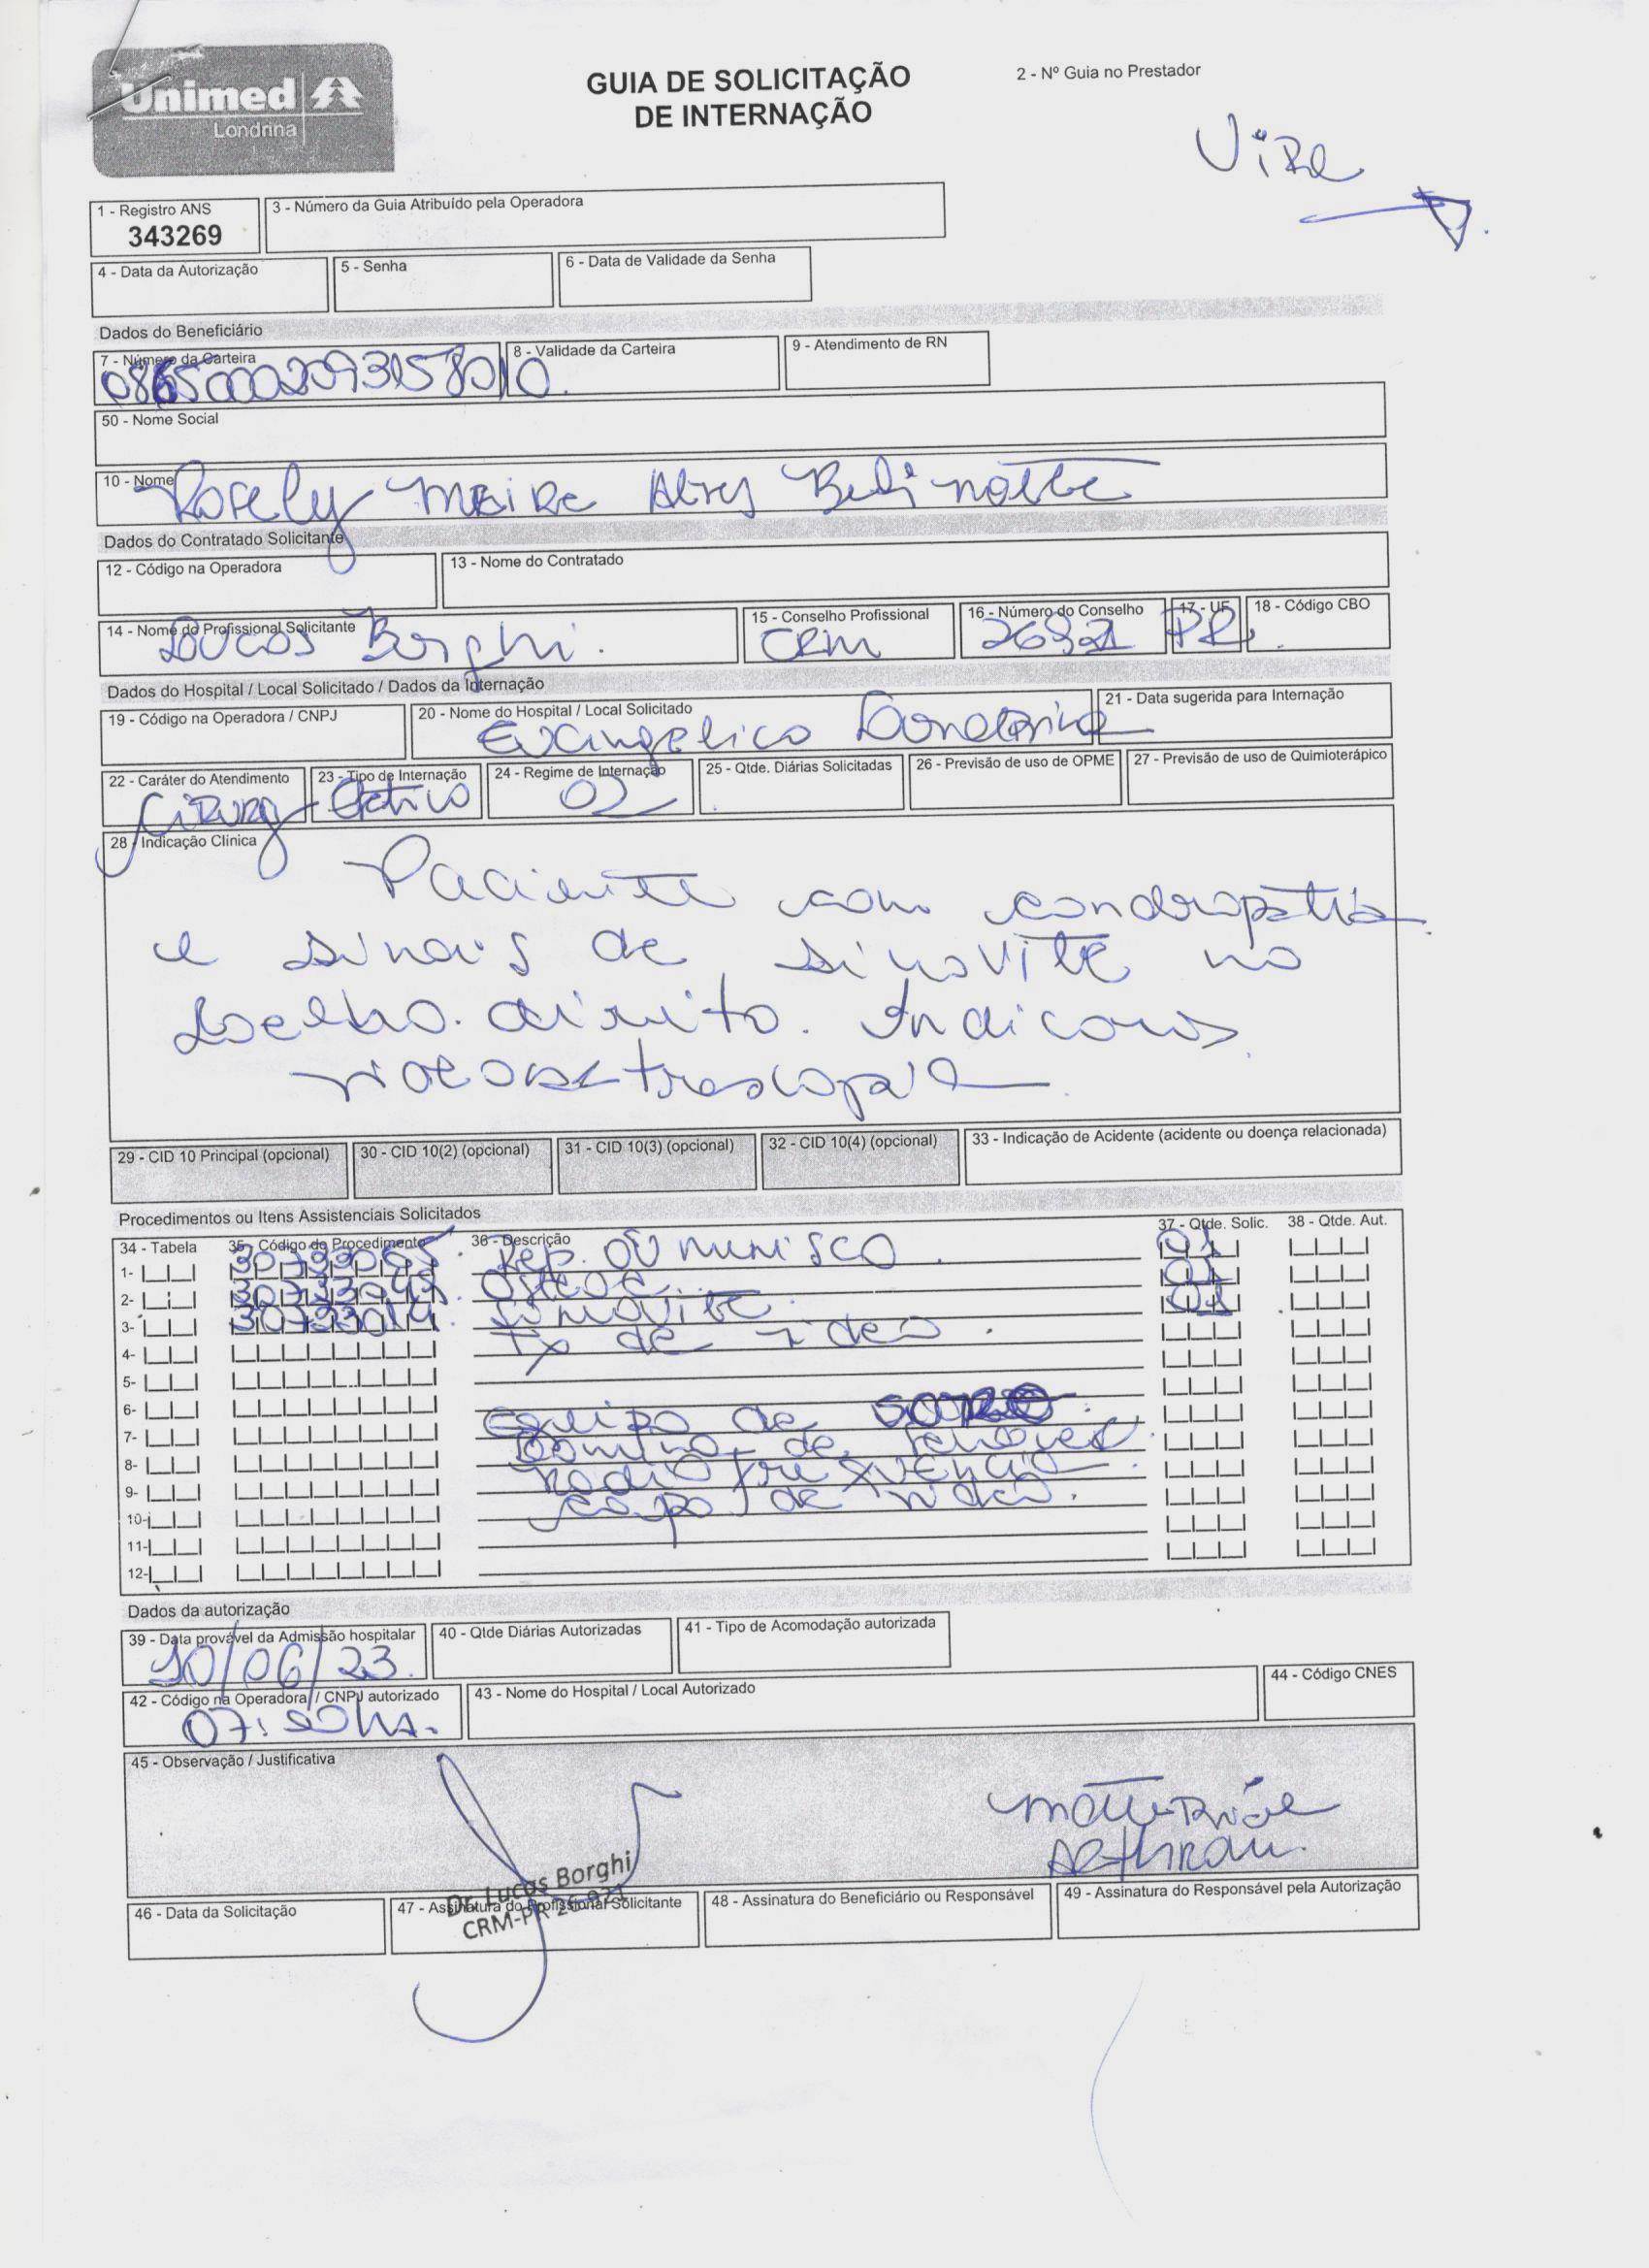 Unimed
Londrina
GUIA DE SOLICITAÇÃO
DE INTERNAÇÃO
2 - Nº Guia no Prestador
Vire
1 - Registro ANS
343269
3 - Número da Guia Atribuído pela Operadora
4 - Data da Autorização
5 - Senha
6 - Data de Validade da Senha
Dados do Beneficiário
7 - Número da Carteira
8 - Validade da Carteira
9 - Atendimento de RN
50 - Nome Social
10 - Nome
Rosely Meire Alves Belinotte
Dados do Contratado Solicitante
12 - Código na Operadora
13 - Nome do Contratado
14 - Nome do Profissional Solicitante
Lucas Borghi.
15 - Conselho Profissional
CRM
16 - Número do Conselho
26921
17 - UF
PR
18 - Código CBO
Dados do Hospital / Local Solicitado / Dados da Internação
19 - Código na Operadora / CNPJ
20 - Nome do Hospital / Local Solicitado
Evangelico Londrina
21 - Data sugerida para Internação
22 - Caráter do Atendimento
Cirurg
23 - Tipo de Internação
Eletivo
24 - Regime de Internação
02
25 - Qtde. Diárias Solicitadas
26 - Previsão de uso de OPME
27 - Previsão de uso de Quimioterápico
28 - Indicação Clínica
Paciente com condropatia
e sinais de sinovite no
Joelho direito. Indicamos
videoartroscopia
29 - CID 10 Principal (opcional)
30 - CID 10(2) (opcional)
31 - CID 10(3) (opcional)
32 - CID 10(4) (opcional)
33 - Indicação de Acidente (acidente ou doença relacionada)
Procedimentos ou Itens Assistenciais Solicitados
34 - Tabela
35 - Código do Procedimento
36 - Descrição
37 - Qtde. Solic.
38 - Qtde. Aut.
1- Rep. ou menisco. 01
2- Osteoc. 01
3- 30733014. Sinovite. 01
4- tx de video.
5-
6-
7- Equipo de soro.
8- de
9- Radio frequencia
10- capa de video.
11-
12-
Dados da autorização
39 - Data provável da Admissão hospitalar
10/06/23
40 - Qtde Diárias Autorizadas
41 - Tipo de Acomodação autorizada
42 - Código na Operadora / CNPJ autorizado
43 - Nome do Hospital / Local Autorizado
44 - Código CNES
45 - Observação / Justificativa
Material
Arthrom
Dr. Lucas Borghi
CRM-PR 26.921
46 - Data da Solicitação
47 - Assinatura do Profissional Solicitante
48 - Assinatura do Beneficiário ou Responsável
49 - Assinatura do Responsável pela Autorização